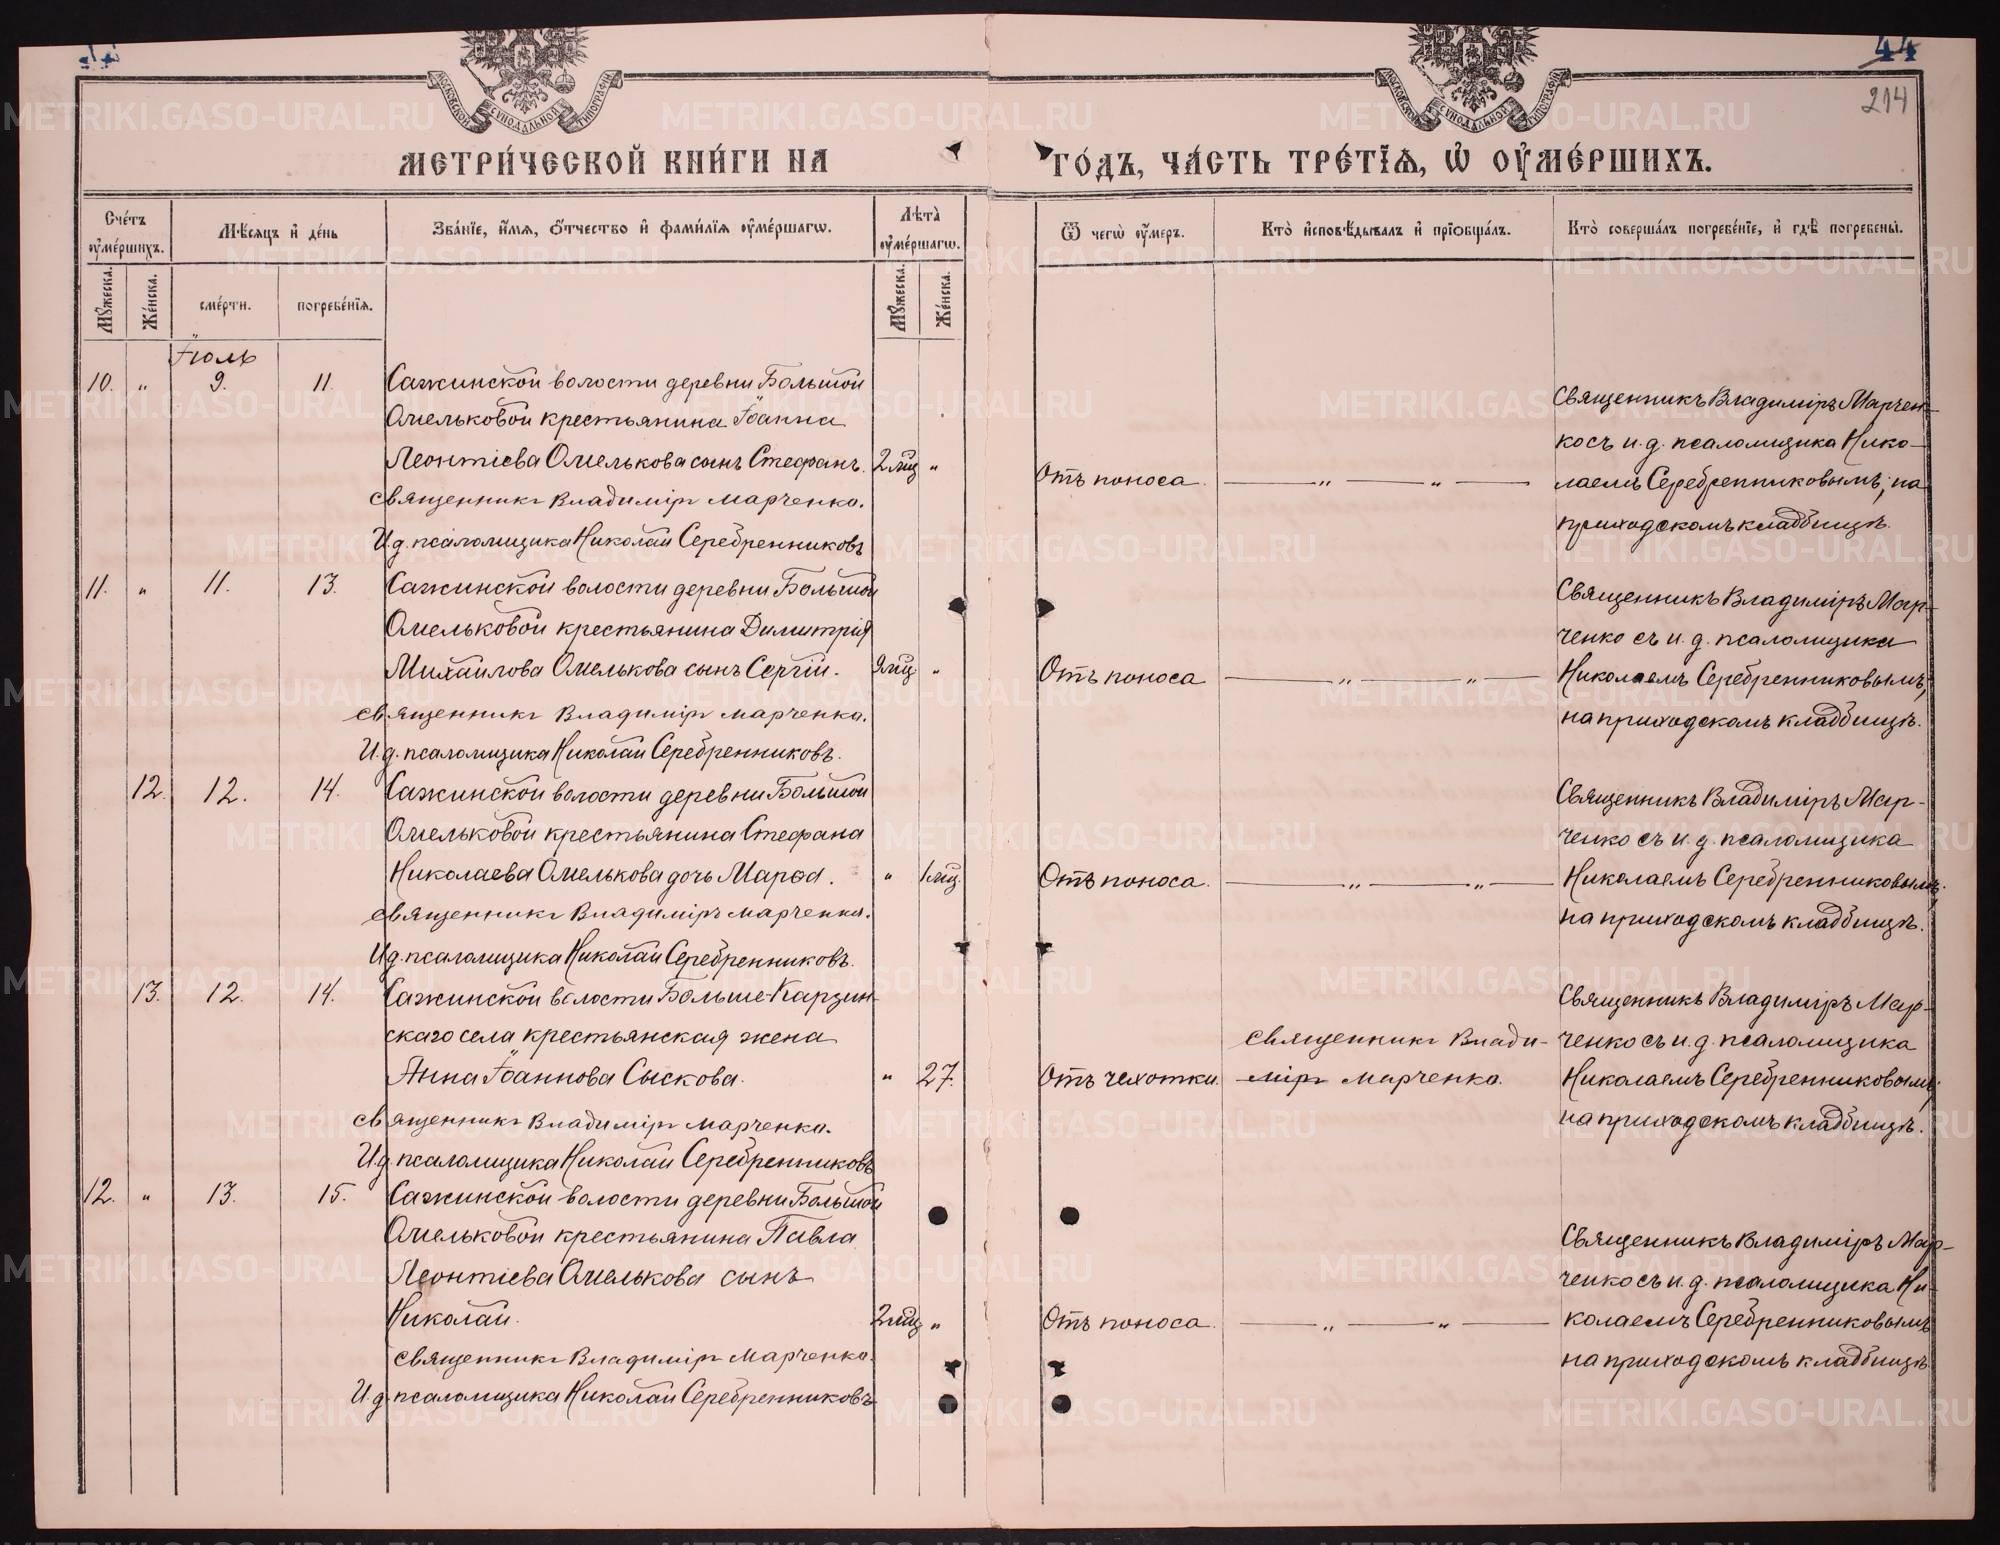 44
214
МОСКОВСКОЙ СѴНОДАЛЬНОЙ ТИПОГРАФІИ
МОСКОВСКОЙ СѴНОДАЛЬНОЙ ТИПОГРАФІИ
МЕТРИ́ЧЕСКОЙ КНИ́ГИ НА
ГО́ДЪ, ЧА́СТЬ ТРЕ́ТЇѦ, Ѡ҆ ОУ҆МЕ́РШИХЪ.
Сче́тъ оу҆ме́ршихъ.
Мѣ́сяцъ и҆ де́нь
Зва́нїе, и҆́мя, о҆́тчество и҆ фами́лїя оу҆ме́ршагѡ.
Лѣ́та̀ оу҆ме́ршагѡ.
Ѿ чегѡ̀ оу҆́меръ.
Кто̀ и҆сповѣ́дывалъ и҆ прїѡбща́лъ.
Кто̀ соверша́лъ погребе́нїе, и҆ гдѣ̀ погребены̀.
Мꙋ́жеска.
Же́нска.
сме́рти.
погребе́нїя.
Мꙋ́жеска.
Же́нска.
Іюль
10. „ 9. 11. Сажинской волости деревни Большой
Омельковой крестьянина Іоанна
Леонтіева Омелькова сынъ Стефанъ. 2 мц „
Священникъ Владиміръ Марченко.
И. д. псаломщика Николай Серебренниковъ
Отъ поноса — „ — „ —
Священникъ Владиміръ Марчен-
ко съ и. д. псаломщика Нико-
лаемъ Серебренниковымъ, на
приходскомъ кладбищѣ.
11. „ 11. 13. Сажинской волости деревни Большой
Омельковой крестьянина Димитрія
Михаилова Омелькова сынъ Сергій. 9 мц „
Священникъ Владиміръ Марченко.
И. д. псаломщика Николай Серебренниковъ.
Отъ поноса — „ — „ —
Священникъ Владиміръ Мар-
ченко съ и. д. псаломщика
Николаемъ Серебренниковымъ,
на приходскомъ кладбищѣ.
12. 12. 14. Сажинской волости деревни Большой
Омельковой крестьянина Стефана
Николаева Омелькова дочь Марѳа. „ 1 мц.
Священникъ Владиміръ Марченко.
И. д. псаломщика Николай Серебренниковъ.
Отъ поноса. — „ — „ —
Священникъ Владиміръ Мар-
ченко съ и. д. псаломщика
Николаемъ Серебренниковымъ,
на приходскомъ кладбищѣ.
13. 12. 14. Сажинской волости Больше-Карзин-
скаго села крестьянская жена
Анна Іоаннова Сыскова. „ 27.
Священникъ Владиміръ Марченко.
И. д. псаломщика Николай Серебренниковъ
Отъ чахотки.
Священникъ Влади-
міръ Марченко.
Священникъ Владиміръ Мар-
ченко съ и. д. псаломщика
Николаемъ Серебренниковымъ,
на приходскомъ кладбищѣ.
12. „ 13. 15. Сажинской волости деревни Большой
Омельковой крестьянина Павла
Леонтіева Омелькова сынъ
Николай. 2 мц „
Священникъ Владиміръ Марченко.
И. д. псаломщика Николай Серебренниковъ
Отъ поноса. — „ — „ —
Священникъ Владиміръ Мар-
ченко съ и. д. псаломщика Ни-
колаемъ Серебренниковымъ
на приходскомъ кладбищѣ.
METRIKI.GASO-URAL.RU